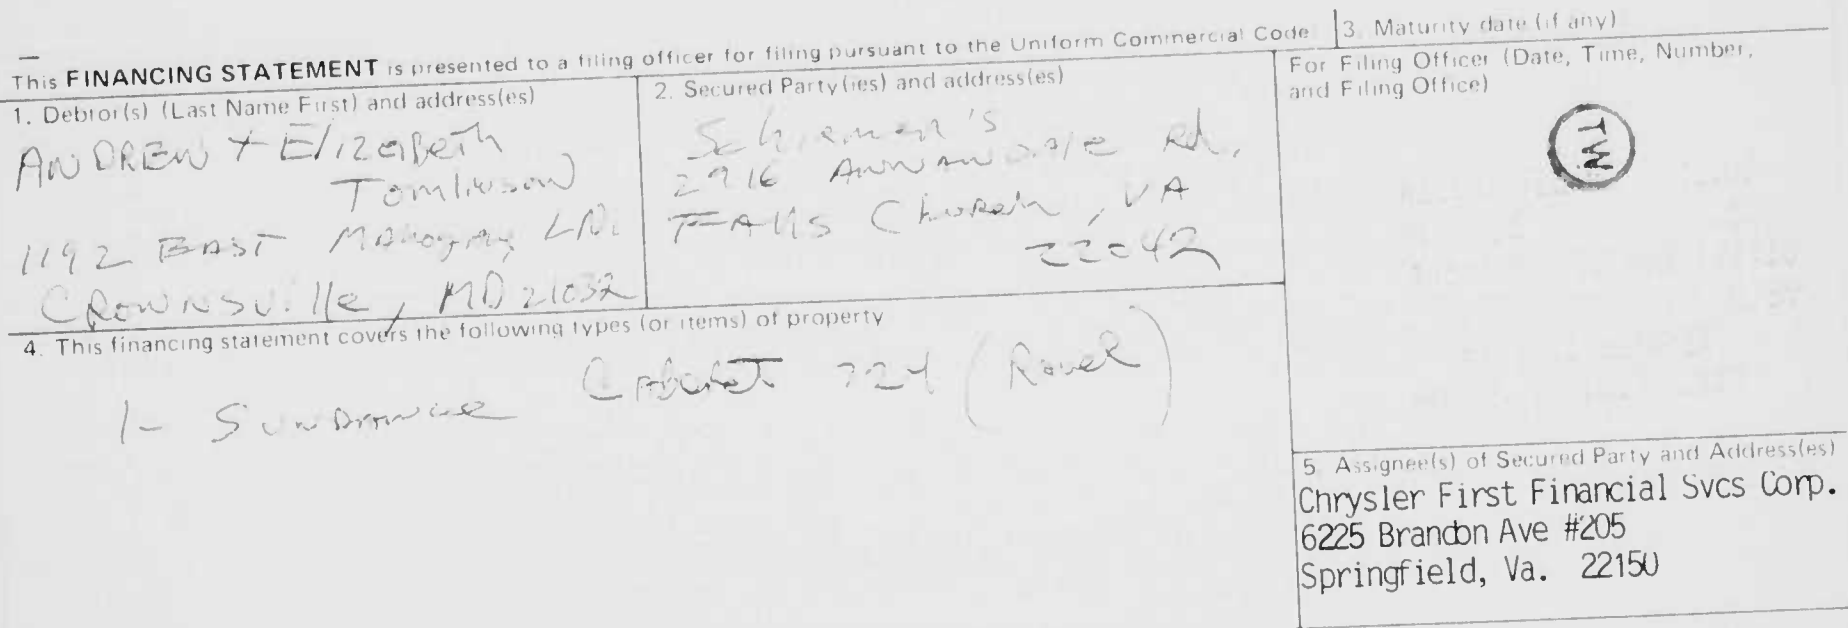 This FINANCING STATEMENT is presented to a filing officer for filing pursuant to the Uniform Commercial Code
3. Maturity date (if any)
1. Debtor(s) (Last Name First) and address(es)
ANDREW + Elizabeth
Tomlinson
1192 EAST Mahogany LN.
CROWNSville, MD 21032
2. Secured Party(ies) and address(es)
2916 Annandale Rd.
FAlls Church, VA
22042
For Filing Officer (Date, Time, Number,
and Filing Office)
TW
4. This financing statement covers the following types (or items) of property
1- Sundance
5. Assignee(s) of Secured Party and Address(es)
Chrysler First Financial Svcs Corp.
6225 Brandon Ave #205
Springfield, Va. 22150